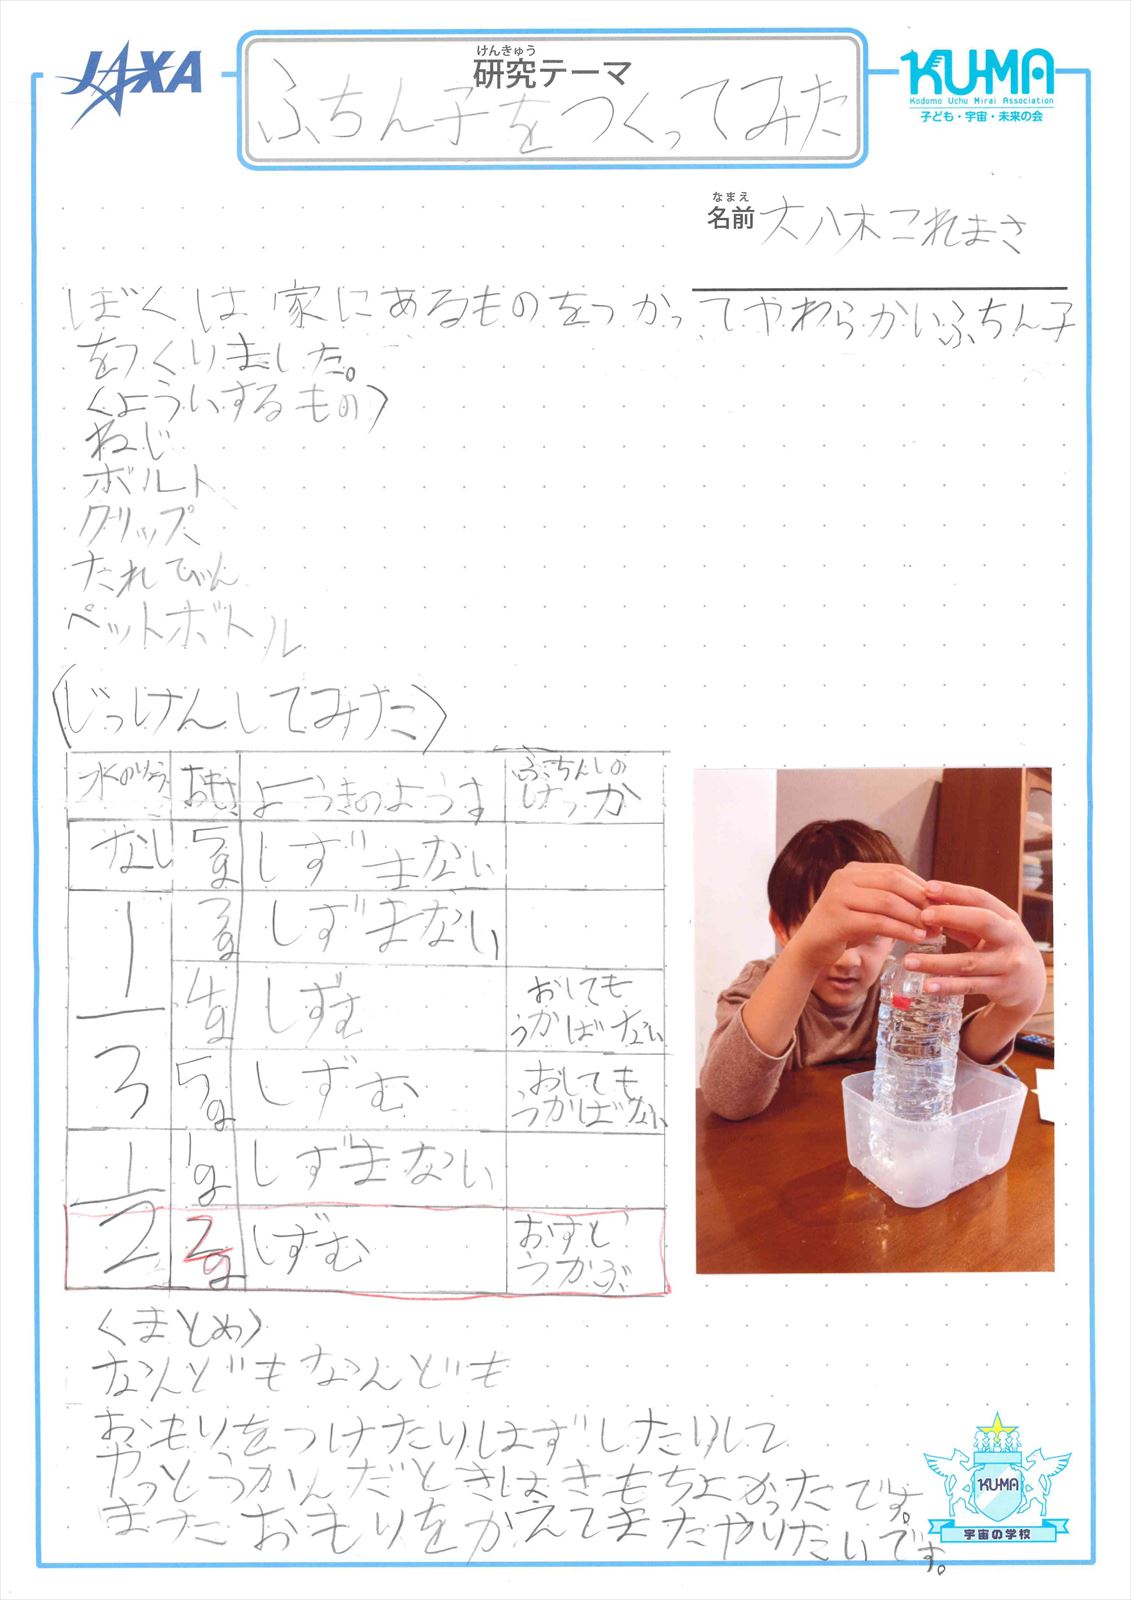 JAXA
けんきゅう
研究テーマ
ふちん子をつくってみた
KU-MA
Kodomo Uchu Mirai Association
子ども・宇宙・未来の会
なまえ
名前 大八木これまさ
ぼくは家にあるものをつかってやわらかいふちん子
をつくりました。
〈よういするもの〉
ねじ
ボルト
クリップ
たれびん
ペットボトル
(じっけんしてみた)
水のりょう おもさ ようきのようす ふちんしのけっか
なし 5g しずまない
1/3 3g しずまない
4g しずむ おしてもうかばない
5g しずむ おしてもうかばない
1/2 1g しずまない
2g しずむ おすとうかぶ
〈まとめ〉
なんどもなんども
おもりをつけたりはずしたりして
やっとうかんだときはきもちよかったです。
またおもりをかえてまたやりたいです。
KU-MA
宇宙の学校